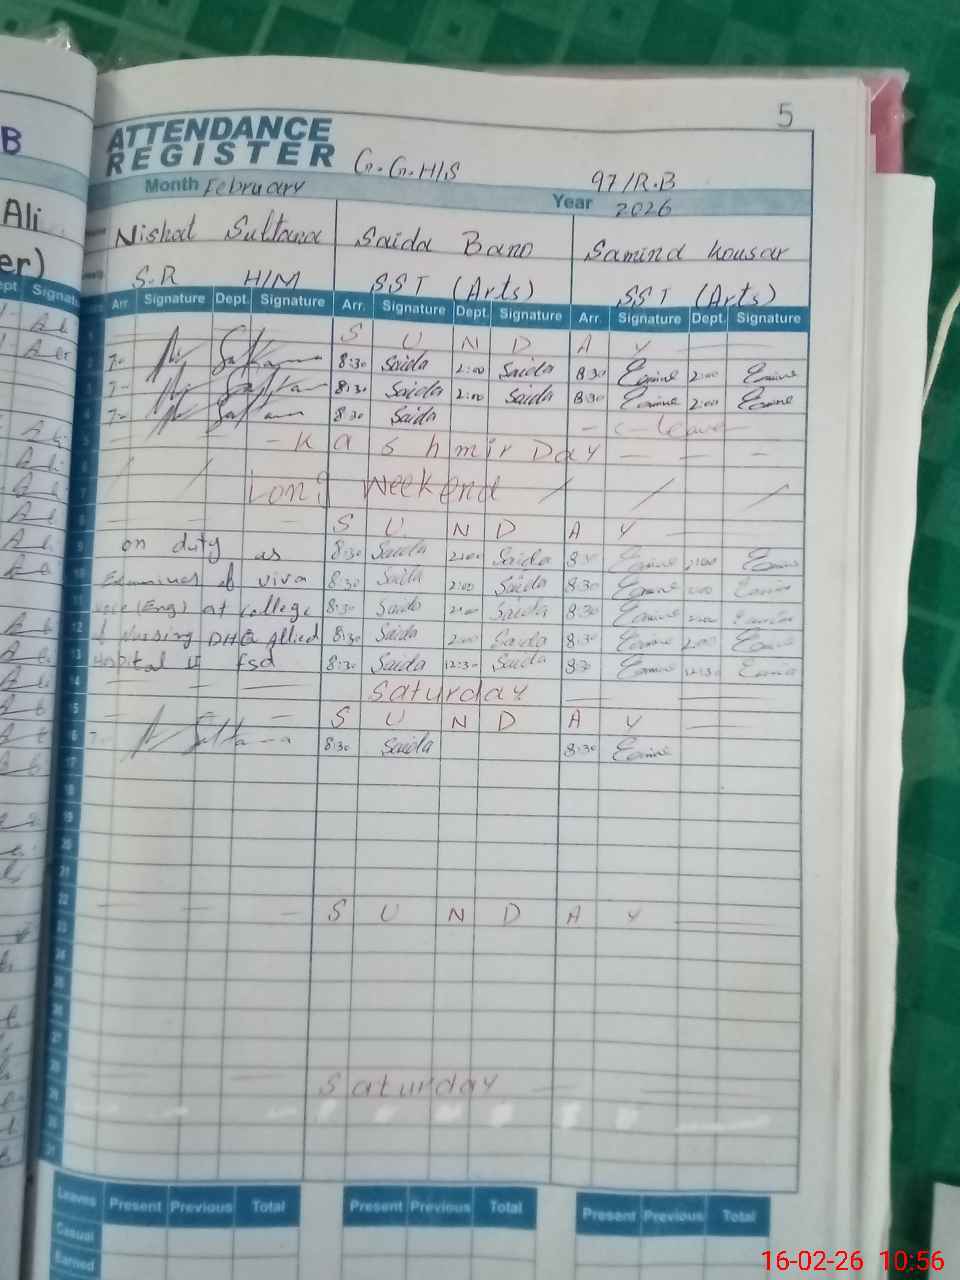 5
B
ATTENDANCE
REGISTER G.G.H/S 97/R.B
Month February Year 2026
Ali
er)
Nishat Sultana Saida Bano Samina Kousar
S.R H/M SST (Arts) SST (Arts)
Arr. Signature Dept. Signature Arr. Signature Dept. Signature Arr. Signature Dept. Signature
S U N D A Y
2 7- Sultana 8:30 Saida 2:00 Saida 8:30 2:00
3 7- Sultana 8:30 Saida 2:00 Saida 8:30 2:00
4 7- Sultana 8:30 Saida - C-leave
5 - K a s h m i r D a y
6
7 Long Weekend
8 S U N D A Y
9 on duty as 8:30 Saida 2:00 Saida 8:30 2:00
10 Examiner of viva 8:30 Saida 2:00 Saida 8:30
11 (Eng) at College 8:30 Saida 2:00 Saida 8:30 2:00
12 Nursing DHQ Allied 8:30 Saida 2:00 Saida 8:30 2:00
13 Hospital Fsd 8:30 Saida 12:30 Saida 8:30 12:30
14 Saturday
15 S U N D A Y
16 7- Sultana 8:30 Saida 8:30
17
18
19
20
21
22 S U N D A Y
23
24
25
26
27
28 Saturday
29
30
31
Leaves Present Previous Total Present Previous Total Present Previous Total
Casual
Earned
16-02-26 10:56